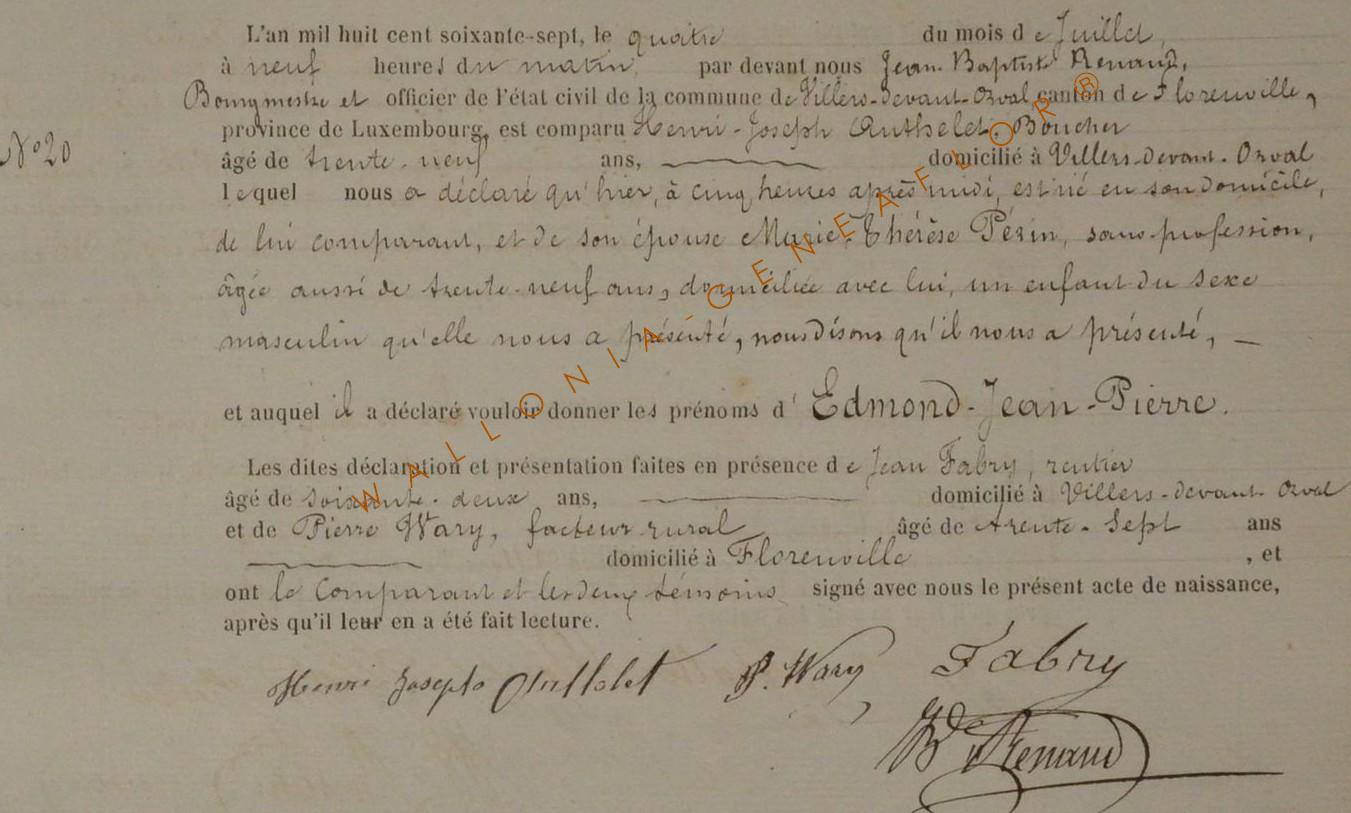 L'an mil huit cent soixante-sept, le quatre du mois de Juillet,
à neuf heures du matin, par devant nous Jean-Baptiste Renaud,
Bourgmestre et officier de l'état civil de la commune de Villers-devant-Orval canton de Florenville,
province de Luxembourg, est comparu Henri-Joseph Authelet, Boucher
N° 20
âgé de trente-neuf ans, domicilié à Villers-devant-Orval
lequel nous a déclaré qu'hier, à cinq heures après midi, est né en son domicile,
de lui comparant, et de son épouse Marie-Thérèse Pésin, sans profession,
âgée aussi de trente-neuf ans, domiciliée avec lui, un enfant du sexe
masculin qu'elle nous a présenté, nous disons qu'il nous a présenté, —
et auquel il a déclaré vouloir donner les prénoms d'Edmond-Jean-Pierre.
Les dites déclaration et présentation faites en présence de Jean Fabry, rentier
âgé de soixante-deux ans, domicilié à Villers-devant-Orval
et de Pierre Wary, facteur rural âgé de trente-sept ans
domicilié à Florenville, et
ont le Comparant et les deux témoins signé avec nous le présent acte de naissance,
après qu'il leur en a été fait lecture.
Henri Joseph Authelet P. Wary Fabry
Renaud
WALLONIA-GENEAFLOR®